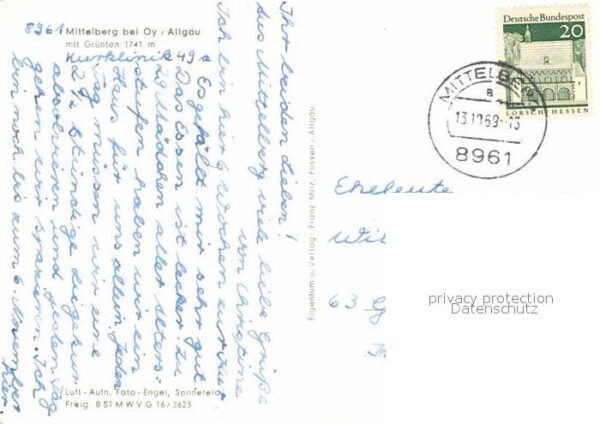 8961 Mittelberg bei Oy / Allgäu
mit Grünten 1741 m
Kurklinik 49 a
Ihr beiden Lieben!
Aus Mittelberg viele liebe Grüße
von Christine
Ich bin hier 6 Wochen zur Kur
Es gefällt mir sehr gut
Das Essen ist lecker. Zu
29 Mädchen aller Alters-
stufen haben wir ein
Haus für uns allein. Jeden
Tag müssen wir eine
2 ½ stündige Liegekur
absolvieren und jeden Tag
gehen wir spazieren. Ich
bin noch bis zum 6 November
hier.
Luft-Aufn. Foto-Engel, Sonnefeld
Freig. BSTMWVG 16/2623
Eigentum u. Verlag: Franz Milz, Füssen / Allgäu
Deutsche Bundespost
20
LORSCH/HESSEN
MITTELBERG
a
13.10.69-13
8961
Eheleute
Wil
63
privacy protection
Datenschutz